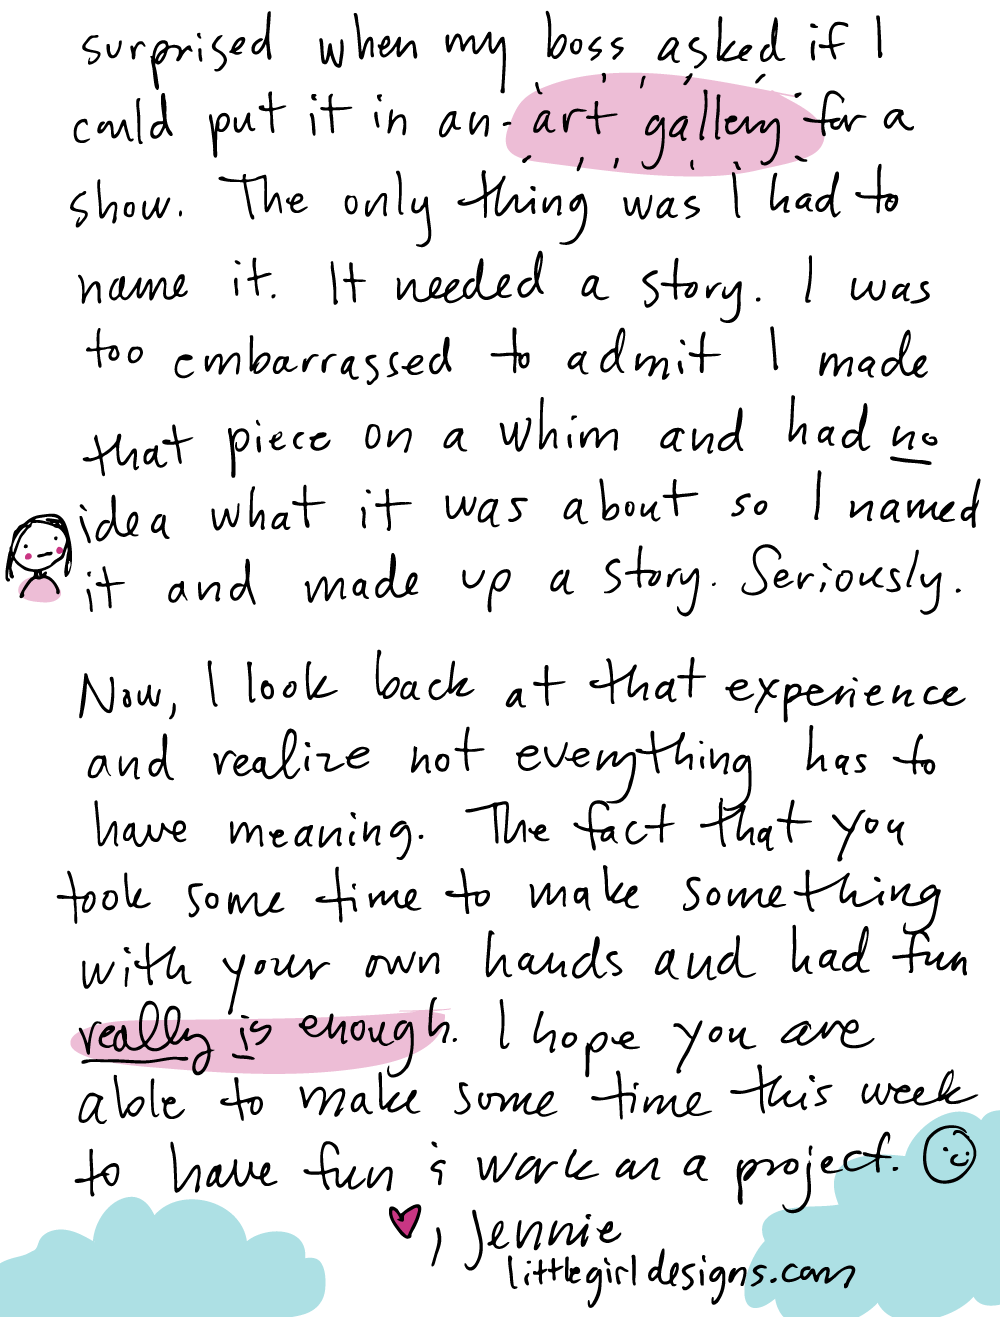 surprised when my boss asked if I
could put it in an art gallery for a
show. The only thing was I had to
name it. It needed a story. I was
too embarrassed to admit I made
that piece on a whim and had no
idea what it was about so I named
it and made up a story. Seriously.
Now, I look back at that experience
and realize not everything has to
have meaning. The fact that you
took some time to make something
with your own hands and had fun
really is enough. I hope you are
able to make some time this week
to have fun & work on a project.
, Jennie
littlegirldesigns.com